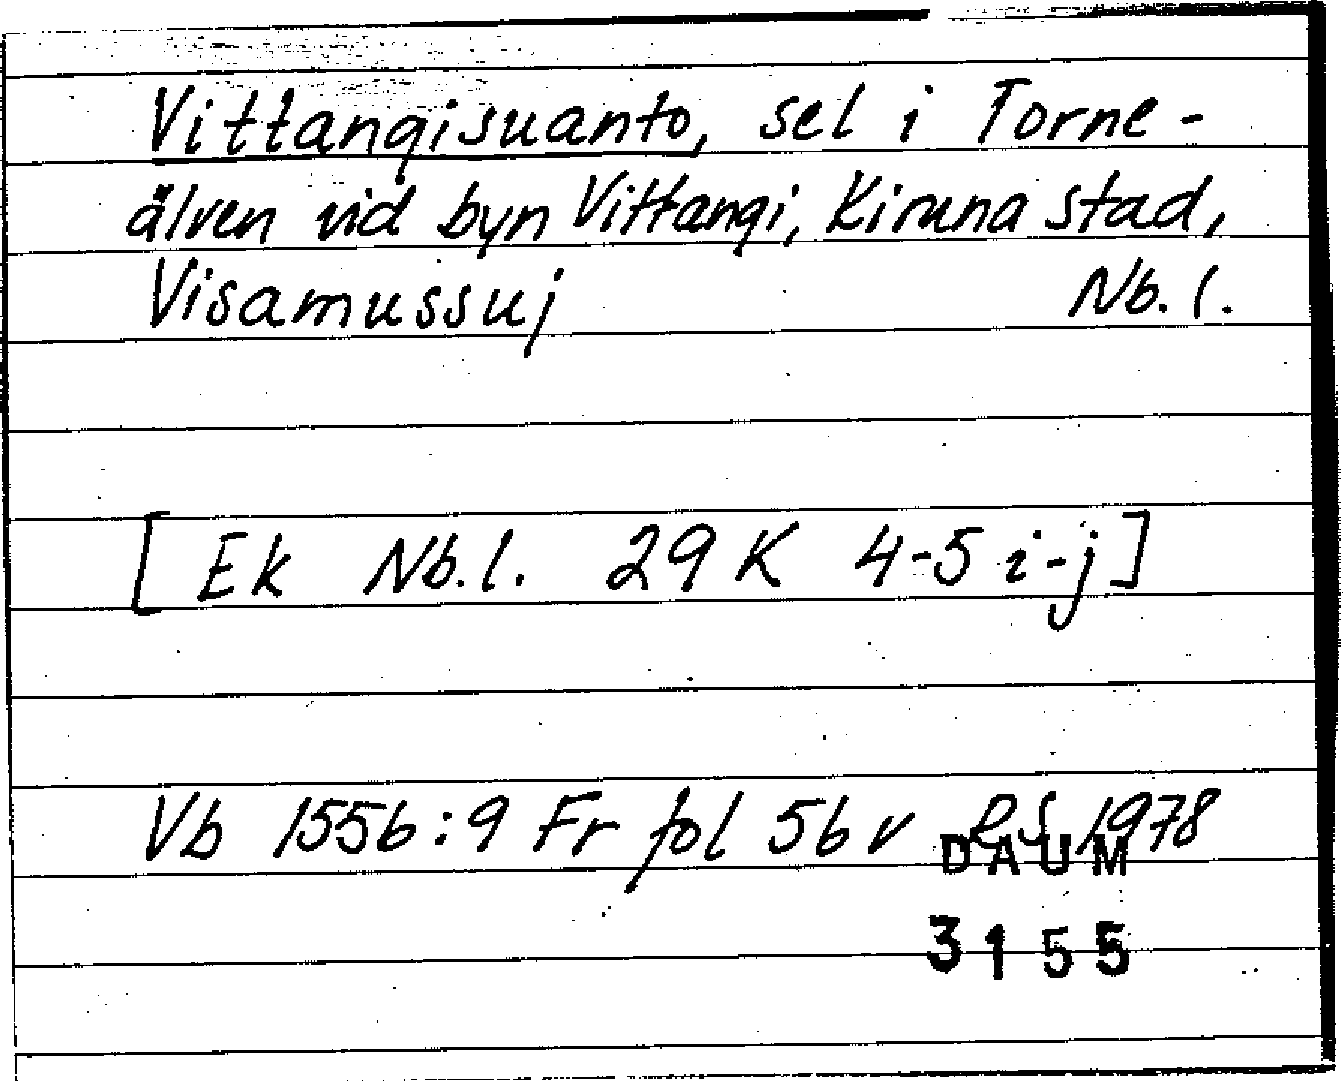 Vittangisuanto, sel i Torne-
älven vid byn Vittangi, Kiruna stad,
Visamussuj Nb. l.
[Ek Nb. l. 29 K 4-5 i-j]
Vb 1556:9 Fr fol 56 v RS 1978
DAUM
3155